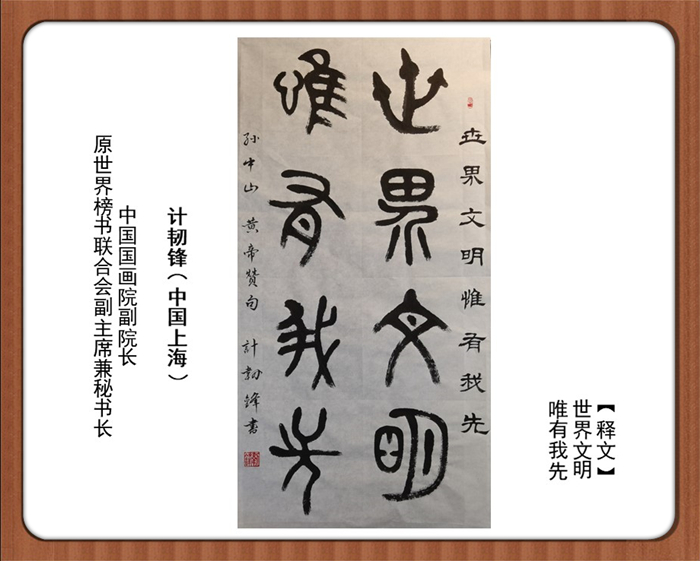 【释文】
世界文明
唯有我先
世界文明惟有我先
世界文明
唯有我先
孙中山 黄帝赞句 计韧锋书
计韧锋（中国上海）
中国国画院副院长
原世界榜书联合会副主席兼秘书长